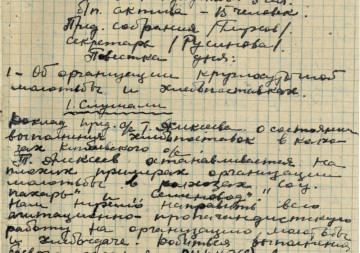 б/п. актива - 13 человек.
Пред. собрания /Пирков/.
Секретарь /Русинова/.
Повестка дня:
1 - Об организации круглосуточной
молотьбы и хлебопоставках.
1. Слушали
Доклад пред. с/с т. Алексеева о состоянии
выполнения хлебопоставок в колхо-
зах с/с
Т. Алексеев останавливается на
плохих примерах организации
молотьбы в колхозах
"Пахарь" и "Семеновод"
Нам нужно направить всю
агитационно-пропагандистскую
работу на организацию молотьбы
и хлебосдаче. Добиться выполнения